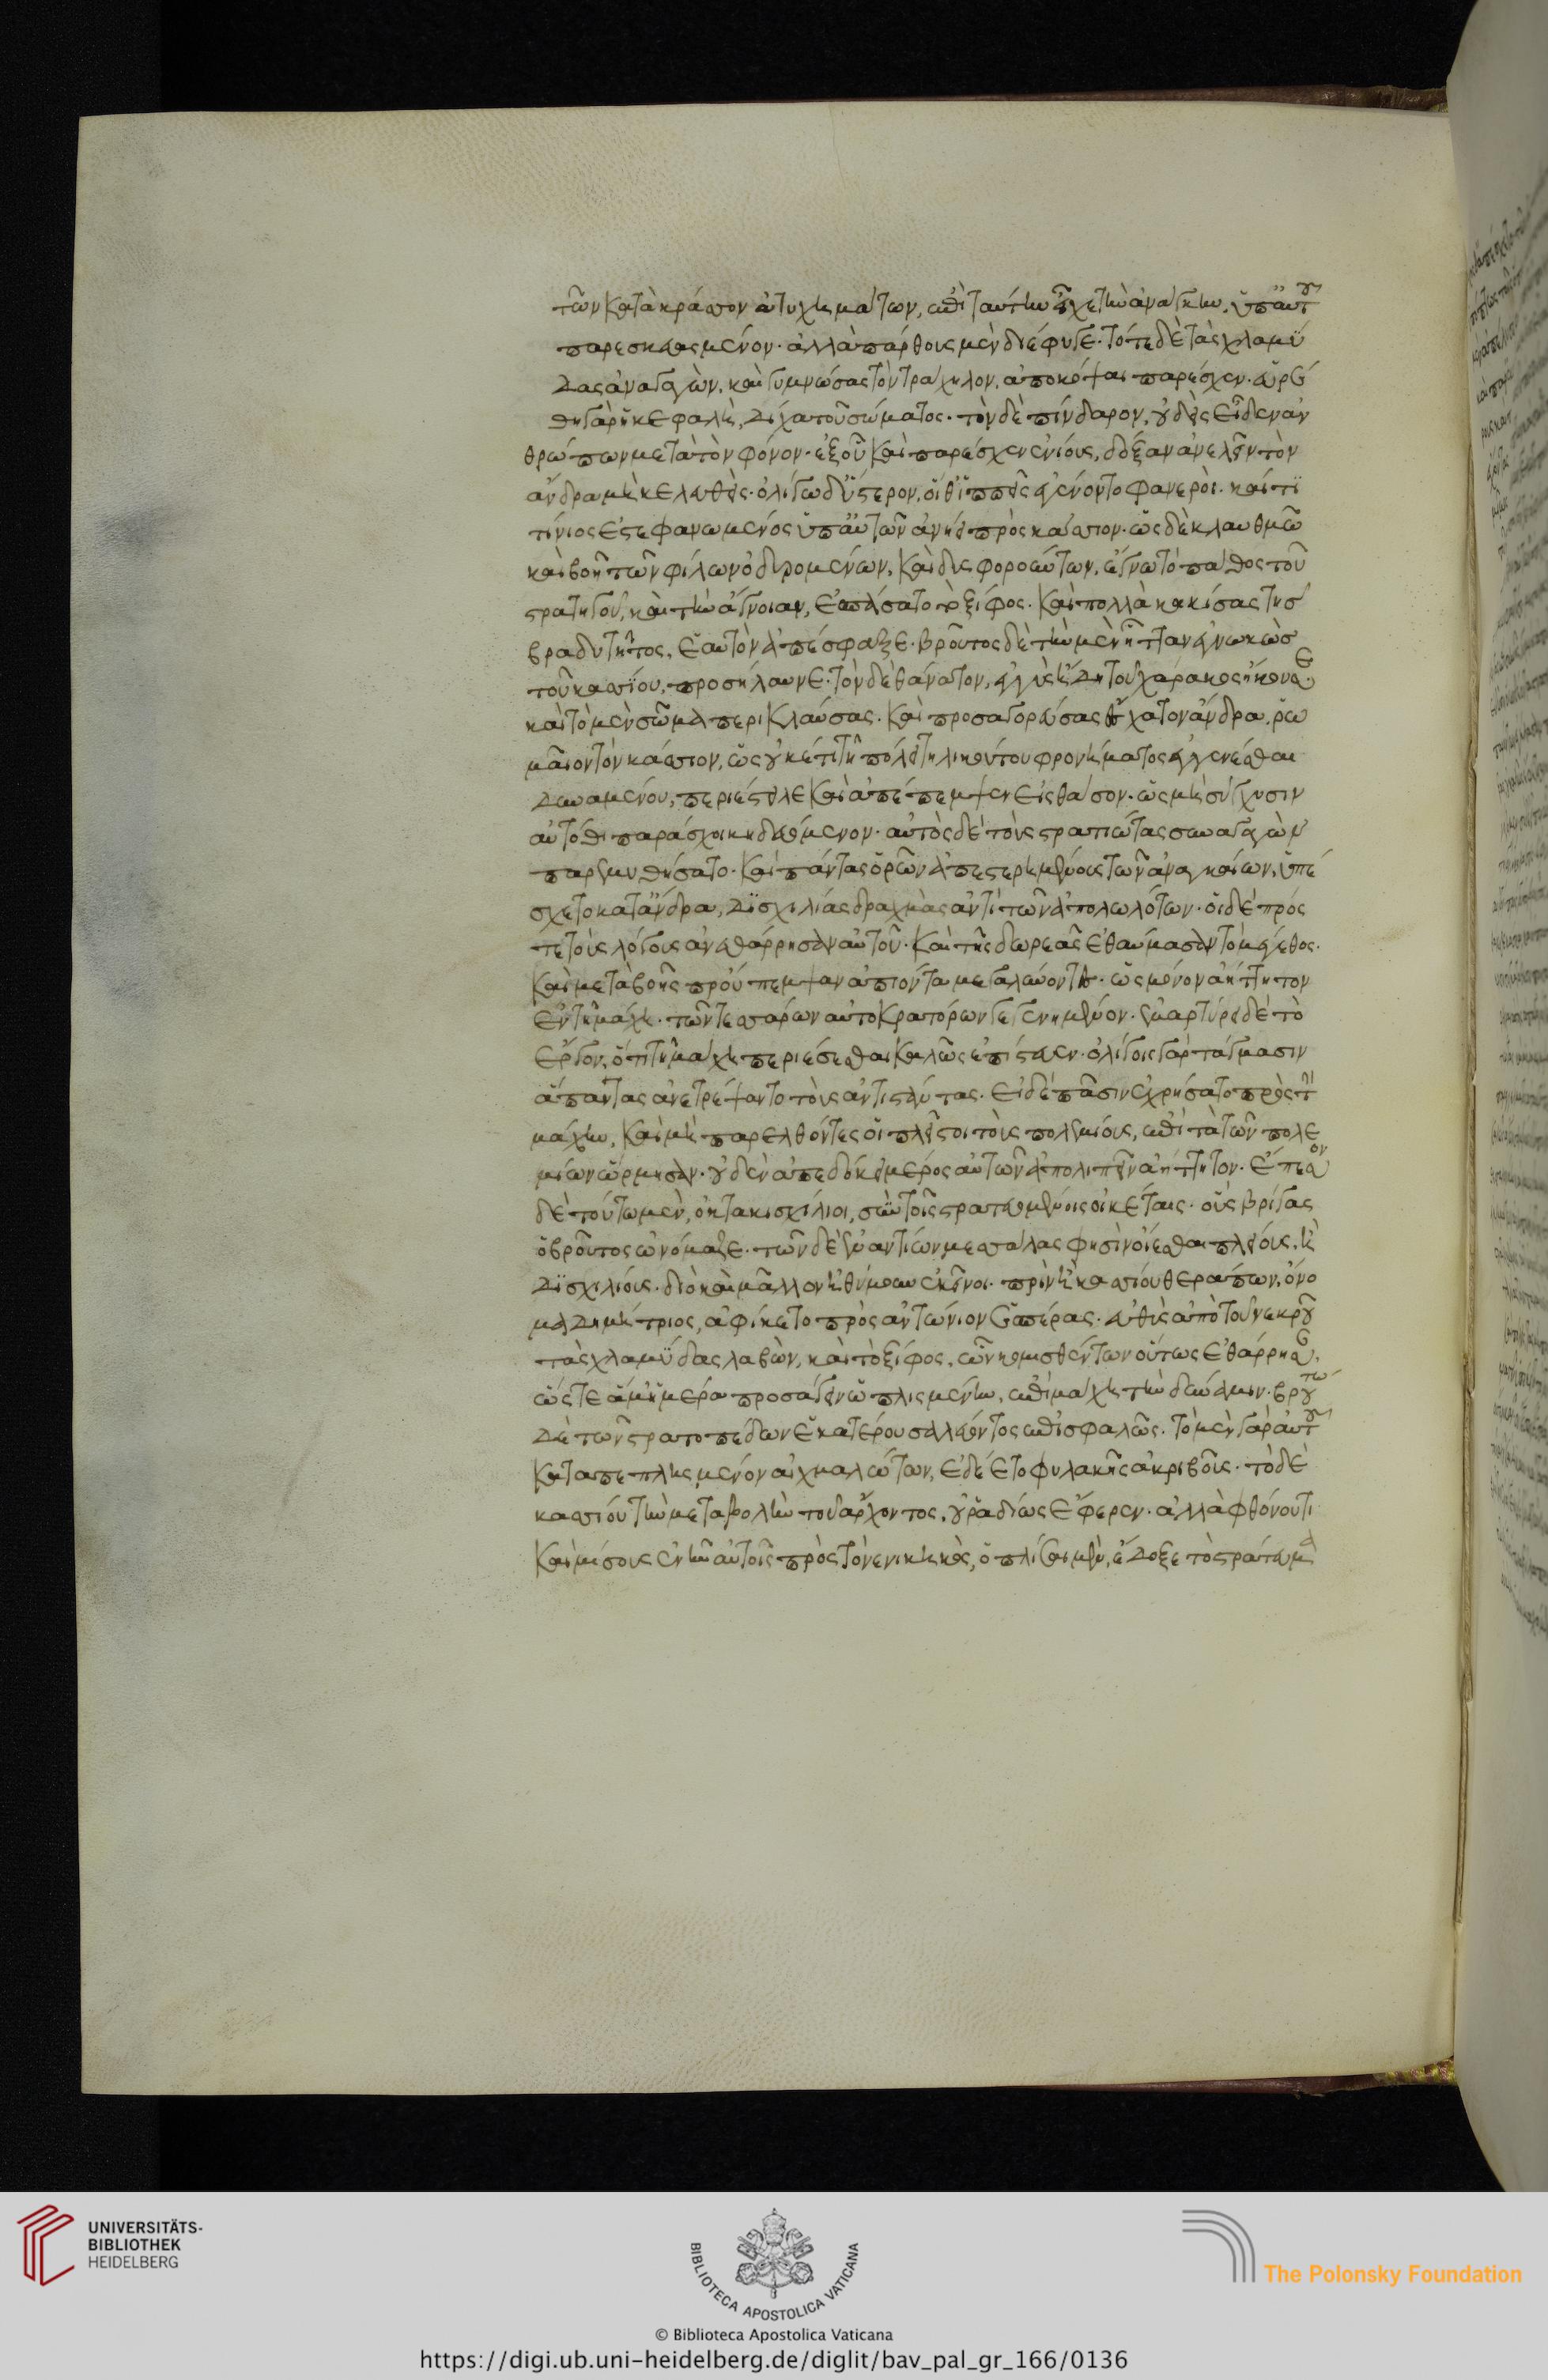 τῶν κατὰ κράσσον ἀτυχημάτων, ἐπὶ ταύτην εἶχε τὴν ἀνάγκην, ὑπ' αὐτοῦ
παρεσκευασμένον. ἀλλὰ πάρθους μὲν διέφυγε. τότε δὲ τὰς χλαμύ
δας ἀναγαγὼν, καὶ γυμνώσας τὸν τράχηλον, ἀποκόψαι παρέσχεν. εὑρέ
θη γὰρ ἡ κεφαλὴ, δίχα τοῦ σώματος. τὸν δὲ πίνδαρον, οὐδεὶς εἶδεν ἀν
θρώπων μετὰ τὸν φόνον. ἐξ οὗ καὶ παρέσχεν ἐνίοις, δόξαν ἀνελεῖν τὸν
ἄνδρα μὴ κελευσθείς. ὀλίγω δ' ὕστερον, οἵ θ' ἱππεῖς ἐγένοντο φανεροὶ. καὶ τι
τίνιος ἐστεφανωμένος ὑπ' αὐτῶν ἀνήει πρὸς κάσσιον. ὡς δὲ κλαυθμῶ
καὶ βοῆ τῶν φίλων ὀδυρομένων, καὶ δυσφορούντων, ἔγνω τὸ πάθος τοῦ
στρατηγοῦ, καὶ τὴν ἄγνοιαν, ἐσπάσατο τὸ ξίφος. καὶ πολλὰ κακίσας τῆς
βραδυτῆτος, ἑαυτὸν ἀπέσφαξε. βροῦτος δὲ τὴν μὲν ἧτταν ἐγνωκὼς
τοῦ κασσίου, προσήλαυνε. τὸν δὲ θάνατον, ἐγγὺς ἤδη τοῦ χάρακος ἤκουσε.
καὶ τὸ μὲν σῶμα περικλαύσας. καὶ προσαγορεύσας ἔσχατον ἄνδρα ῥω
μαίων τὸν κάσσιον, ὡς οὐκέτι τῆ πόλει τηλικούτου φρονήματος ἐγγενέσθαι
δυναμένου, περιέστειλε καὶ ἀπέπεμψεν εἰς θάσον. ὡς μὴ σύγχυσιν
αὐτόθι παράσχοι κηδευόμενον. αὐτὸς δὲ τοὺς στρατιώτας συναγαγὼν
παρεμυθήσατο. καὶ πάντας ὁρῶν ἀπεστερημένους τῶν ἀναγκαίων, ὑπέ
σχετο κατ' ἄνδρα, δισχιλίας δραχμὰς ἀντὶ τῶν ἀπολωλότων. οἱ δὲ πρός
τε τοὺς λόγους ἀνεθάρρησαν αὐτοῦ. καὶ τῆς δωρεᾶς ἐθαύμασαν τὸ μέγεθος.
καὶ μετὰ βοῆς προύπεμψαν ἀπιόντα μεγαλύνοντες. ὡς μόνον ἀήττητον
ἐν τῆ μάχη. τῶν τεσσάρων αὐτοκρατόρων γεγενημένον. ἐμαρτύρει δὲ τὸ
ἔργον, ὅτι τῆ μάχη περιέσεσθαι καλῶς ἐπίστευεν. ὀλίγοις γὰρ τάγμασιν
ἅπαντας ἀνετρέψαντο τοὺς ἀντιστάντας. εἰ δὲ πᾶσιν ἐχρήσατο πρὸς τὴν
μάχην, καὶ μὴ παρελθόντες οἱ πλεῖστοι τοὺς πολεμίους, ἐπὶ τὰ τῶν πολε
μίων ὥρμησαν. οὐδὲν ἂν ἐδόκει μέρος αὐτῶν ἀπολιπεῖν ἀήττητον. ἔπεσον
δὲ τούτω μὲν, ὀκτακισχίλιοι, σὺν τοῖς στρατευομένοις οἰκέταις. οὓς βρίγας
ὁ βροῦτος ὠνόμαζε. τῶν δὲ ἐναντίων μεσσάλας φησὶν οἴεσθαι πλείους, ἢ
δισχιλίους. διὸ καὶ μᾶλλον ἠθύμουν ἐκεῖνοι. πρὶν ἢ κασσίου θεράπων, ὄνο
μα δημήτριος, ἀφίκετο πρὸς ἀντώνιον ἑσπέρας. εὐθὺς ἀπὸ τοῦ νεκροῦ
τὰς χλαμύδας λαβὼν, καὶ τὸ ξίφος. ὧν κομισθέντων οὕτως ἐθάρρησαν,
ὥστε ἅμ' ἡμέρα προσάγειν ὡπλισμένην, ἐπὶ μάχη τὴν δύναμιν. βρούτω
δὲ τῶν στρατοπέδων ἑκατέρου σαλεύοντος ἐπισφαλῶς. τὸ μὲν γὰρ αὐτοῦ
καταπεπλησμένον αἰχμαλώτων, ἐδέετο φυλακῆς ἀκριβοῦς. τὸ δὲ
κασσίου τὴν μεταβολὴν τοῦ ἄρχοντος, οὐ ῥαδίως ἔφερεν. ἀλλὰ φθόνου τι
καὶ μίσους ἐνῆν αὐτοῖς πρὸς τὸ νενικηκὸς, ὁπλίσαι μὲν, ἔδοξε τὸ στράτευμα
UNIVERSITÄTS-
BIBLIOTHEK
HEIDELBERG
BIBLIOTECA APOSTOLICA VATICANA
The Polonsky Foundation
© Biblioteca Apostolica Vaticana
https://digi.ub.uni-heidelberg.de/diglit/bav_pal_gr_166/0136